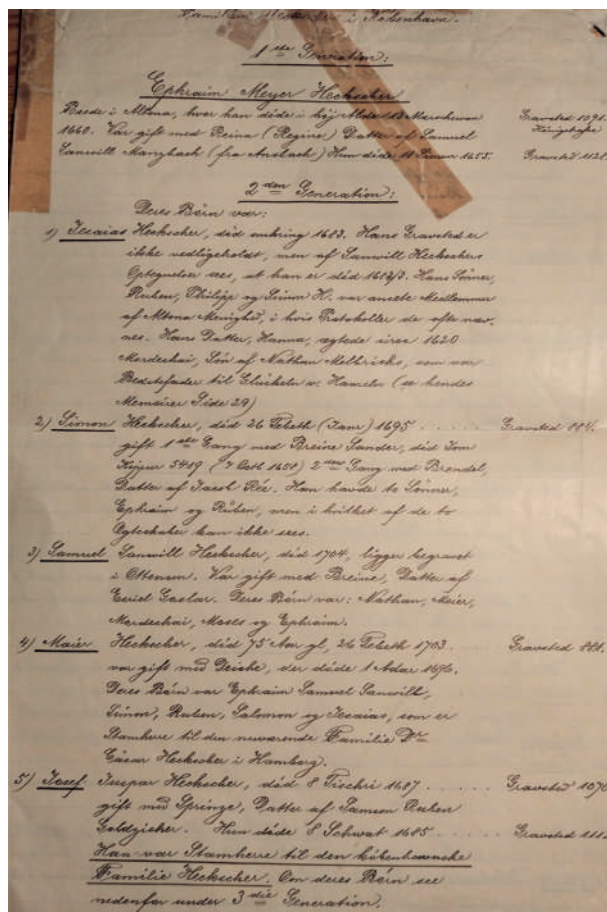 Familien Heckscher i København.
1ste Generation:
Ephraim Meyer Heckscher
Boede i Altona, hvor han döde i höj Alder 13 Marcheswan Gravsted 1091.
1660. Var gift med Reina (Regine) Datter af Samuel Königstrasse
Sanwill Manzbach (fra Ansbach) Hun döde 11 Siwan 1655. Gravsted 1121.
2den Generation:
Deres Börn var:
1) Jesaias Heckscher, död omkring 1683. Hans Gravsted er
ikke vedligeholdt, men af Sanwill Heckschers
Optegnelser sees, at han er död 1682/3. Hans Sönner,
Ruben, Philipp og Simon H. var ansete Medlemmer
af Altona Menighed, i hvis Protokoller de ofte næv-
nes. Hans Datter, Hanna, ægtede circa 1620
Mordechai, Sön af Nathan Melbricks, som var
Bedstefader til Glückeln v. Hameln (se hendes
Memoirer Side 29)
2) Simon Heckscher, död 26 Tebeth (Janr) 1695 . . . . . Gravsted 884.
gift 1ste Gang med Breine Sander, död Jom
Kippur 5419 (7 Octb 1658) 2den Gang med Brendel,
Datter af Jacob Rée. Han havde to Sönner,
Ephraim og Rüben, men i hvilket af de to
Ægteskaber kan ikke sees.
3) Samuel Sanwill Heckscher, död 1704, ligger begravet
i Ottensen. Var gift med Breine, Datter af
Goslar. Deres Börn var: Nathan, Meier,
Mordechai, Moses og Ephraim.
4) Maier Heckscher, död 75 Aar gl, 26 Tebeth 1703. Gravsted 881.
var gift med der döde 1 Adar 1696.
Deres Börn var Ephraim Samuel Sanwill,
Simon, Ruben, Salomon og Jesaias, som er
Stamherre til den nuværende Familie Dr
Cäsar Heckscher i Hamborg.
5) Josef Juspar Heckscher, död 8 Tischri 1687 . . . . . Gravsted 1070
gift med Springe, Datter af Samson Ruben
Goldzieher. Hun döde 8 Schwat 1685 . . . . . Gravsted 1112
Han var Stamherre til den köbenhavnske
Familie Heckscher. Om deres Börn see
nedenfor under 3die Generation.